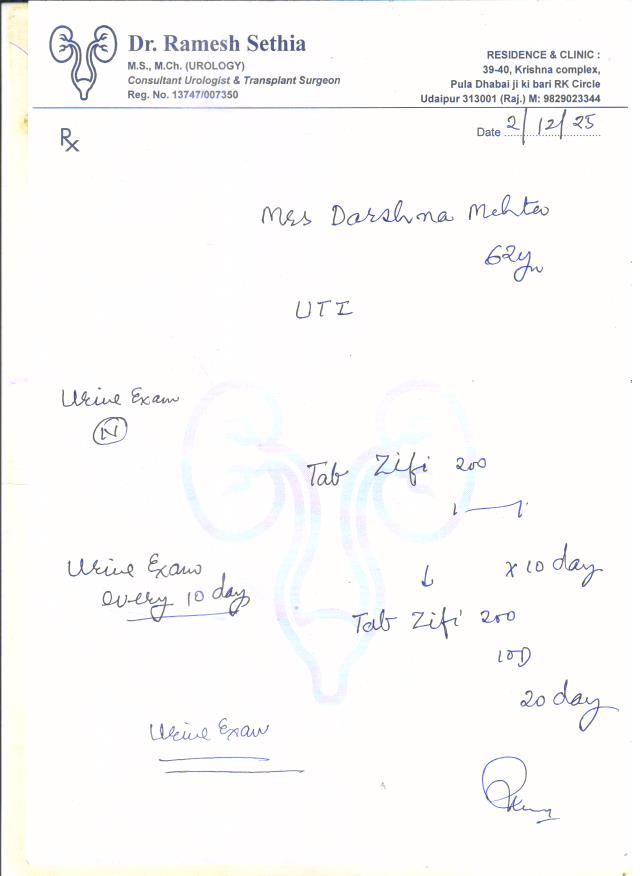 Dr. Ramesh Sethia
M.S., M.Ch. (UROLOGY)
Consultant Urologist & Transplant Surgeon
Reg. No. 13747/007350
RESIDENCE & CLINIC :
39-40, Krishna complex,
Pula Dhabai ji ki bari RK Circle
Udaipur 313001 (Raj.) M: 9829023344
Date 2/12/25
Rx
Mrs Darshna Mehta
62yr
UTI
Urine Exam
N
Tab Zifi 200
1 — 1
x 10 day
Urine Exam
every 10 day
↓
Tab Zifi 200
10D
20 day
Urine Exam